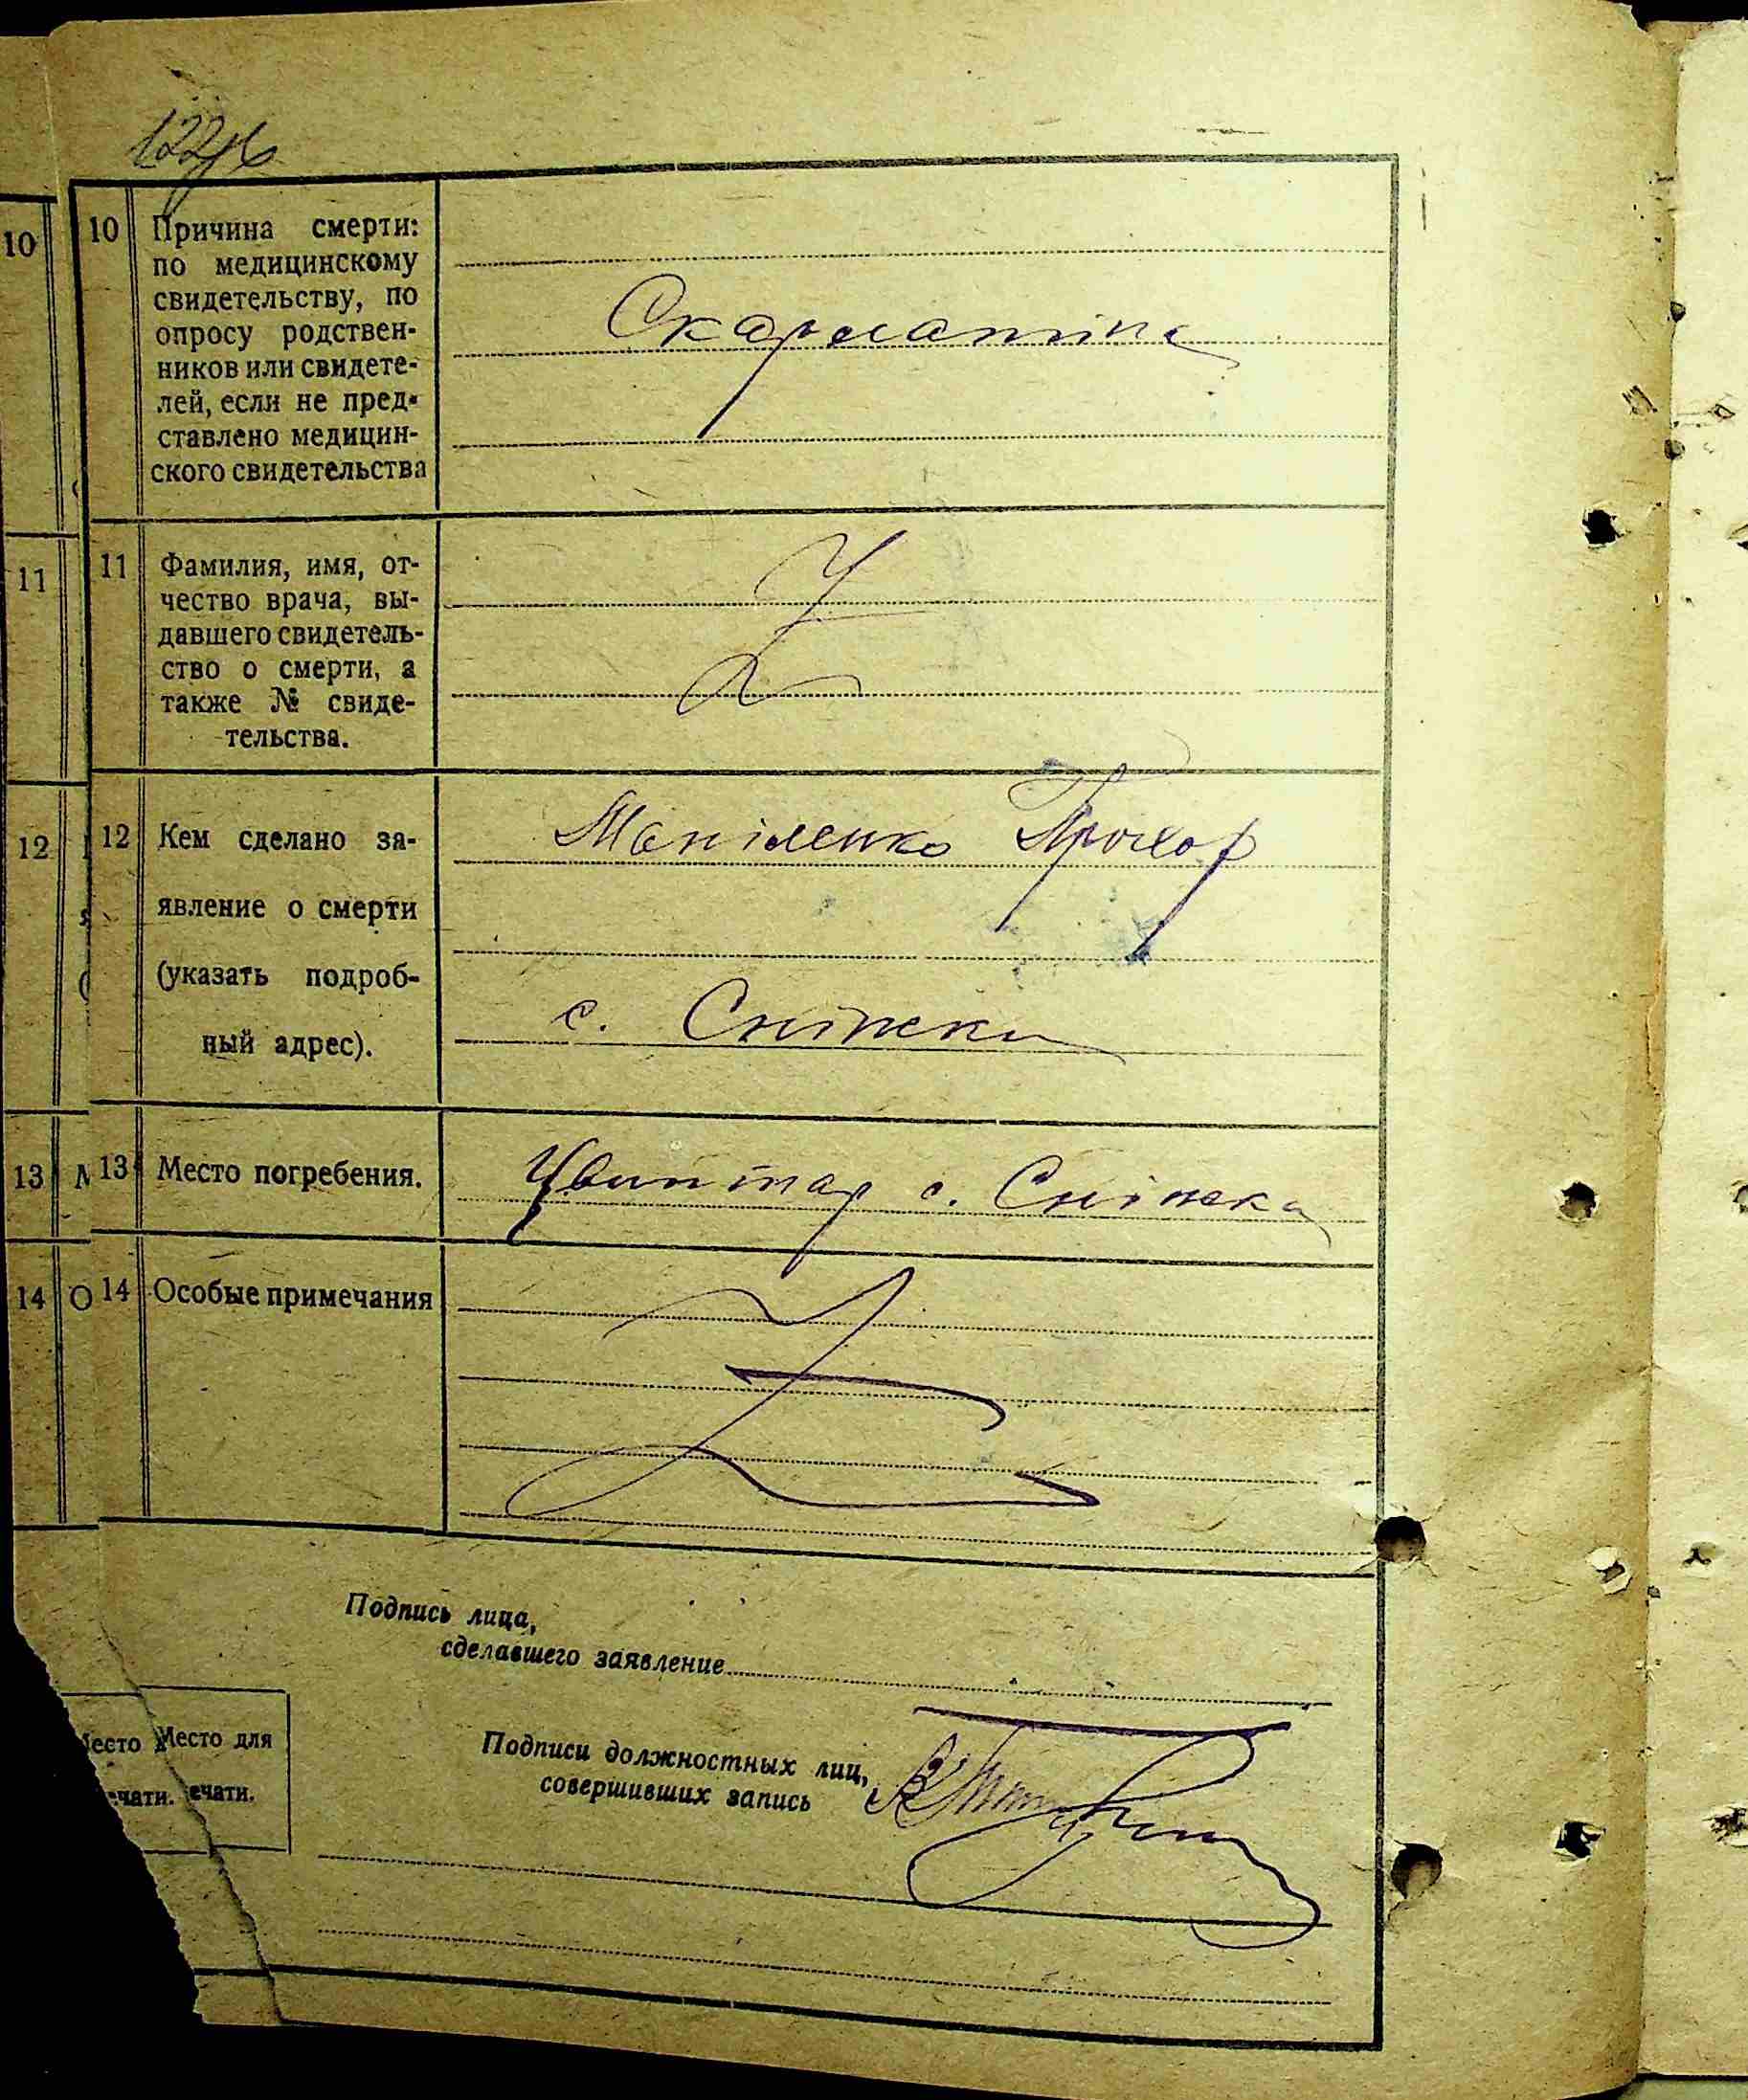 10
10
Причина смерти:
по медицинскому
свидетельству, по
опросу родствен-
ников или свидете-
лей, если не пред-
ставлено медицин-
ского свидетельства
Скарлатина
11
11
Фамилия, имя, от-
чество врача, вы-
давшего свидетель-
ство о смерти, а
также № свиде-
тельства.
12
12
Кем сделано за-
явление о смерти
(указать подроб-
ный адрес).
Маніленко Прохор
с. Сніжки
13
13
Место погребения.
Цвинтар с. Сніжка
14
О
14
Особые примечания
Подпись лица,
сделавшего заявление
Место для
ечати.
Подписи должностных лиц,
совершивших запись